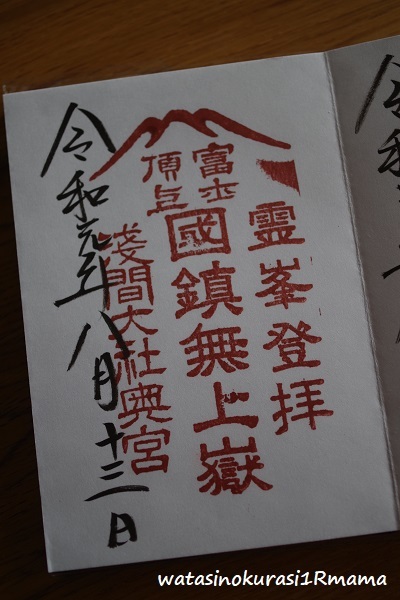 霊峯登拝
富士
頂上
國鎮無上嶽
淺間大社奥宮
令和元年八月十三日
令和
watasinokurasi1Rmama